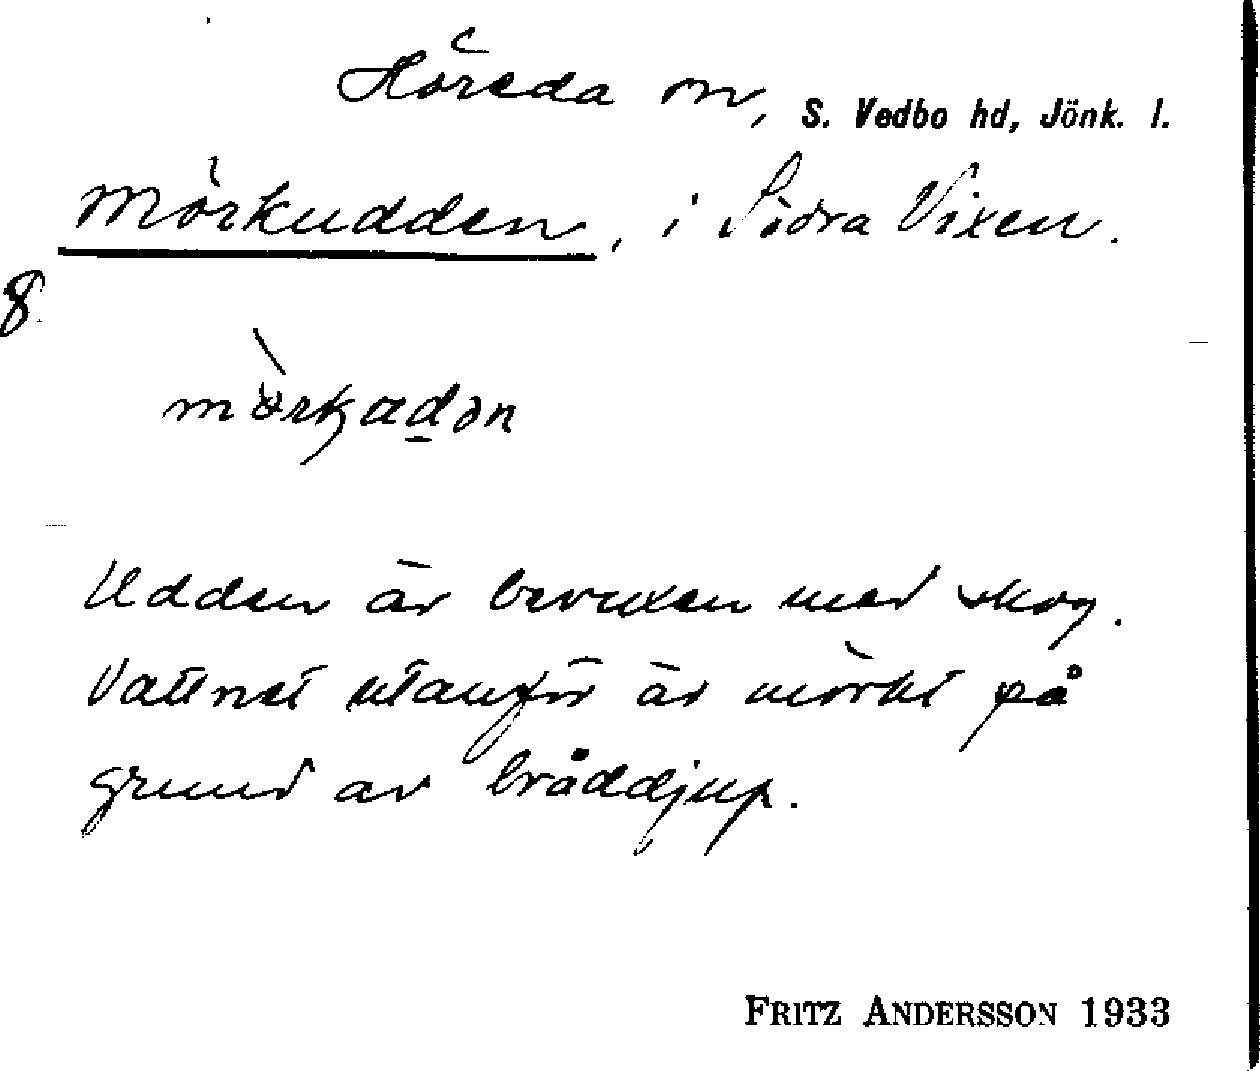 Höreda sn, S. Vedbo hd, Jönk. l.
Mörkudden, i Södra Vixen.
8
Udden är bevuxen med skog.
Vattnet utanför är mörkt på
grund av bråddjup.
FRITZ ANDERSSON 1933